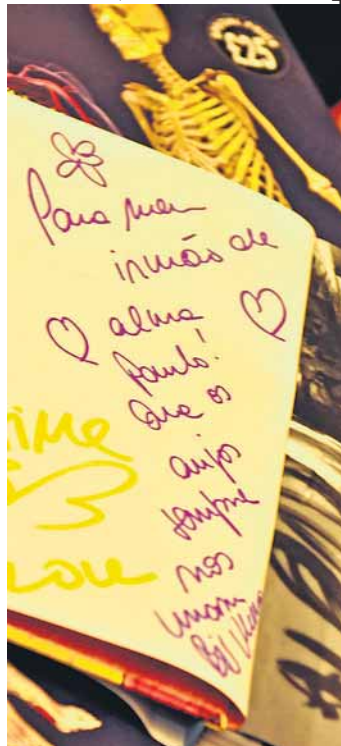 £25
Para meu
irmão de
alma
Paulo!
Que os
anjos
sempre
nos
unam
Love